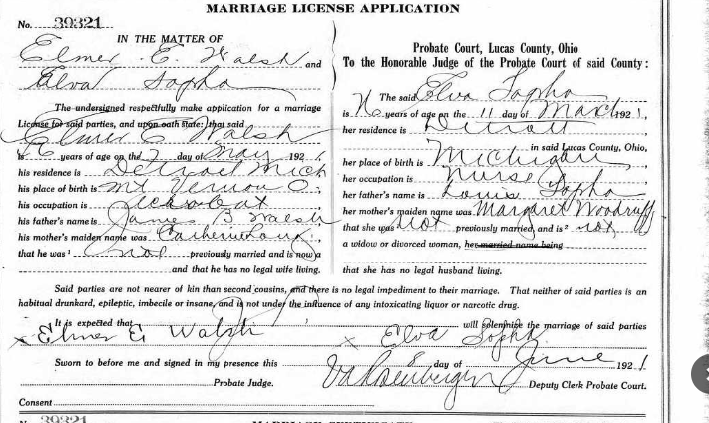 MARRIAGE LICENSE APPLICATION
No. 39321
IN THE MATTER OF
Elmer E. Walsh and
Elva Sopha
The undersigned respectfully make application for a marriage
License for said parties, and upon oath state: that said
Elmer E Walsh
is years of age on the 7 day of May 1921,
his residence is Detroit Mich
his place of birth is Mt Vernon O.
his occupation is
his father's name is James B Walsh
his mother's maiden name was Catherine
that he was not previously married and is now a
and that he has no legal wife living.
Probate Court, Lucas County, Ohio
To the Honorable Judge of the Probate Court of said County:
The said Elva Sopha
is years of age on the 11 day of March 1921,
her residence is Detroit
in said Lucas County, Ohio,
her place of birth is Michigan,
her occupation is Nurse
her father's name is Louis Sopha
her mother's maiden name was Margaret Woodruff
that she was not previously married, and is not,
a widow or divorced woman, her married name being
that she has no legal husband living.
Said parties are not nearer of kin than second cousins, and there is no legal impediment to their marriage. That neither of said parties is an
habitual drunkard, epileptic, imbecile or insane, and is not under the influence of any intoxicating liquor or narcotic drug.
It is expected that will solemnize the marriage of said parties
x Elmer E. Walsh x Elva Sopha
Sworn to before me and signed in my presence this 8 day of June 1921
Probate Judge. Deputy Clerk Probate Court.
Consent
No. 39321
MARRIAGE CERTIFICATE